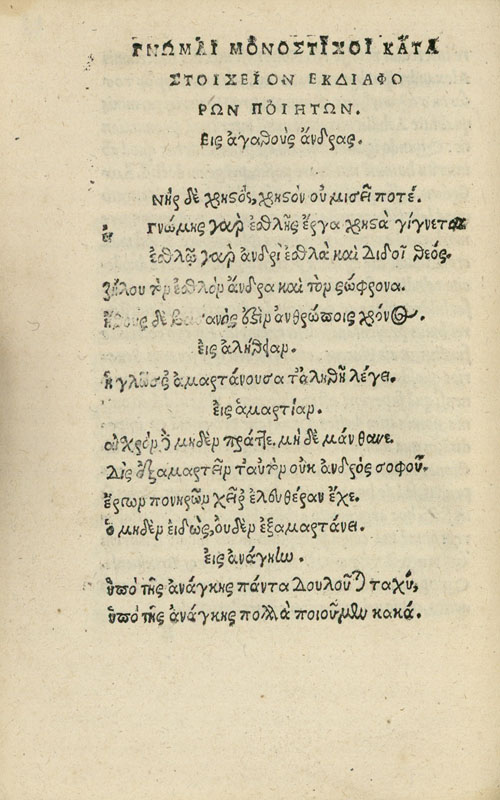 ΓΝΩΜΑΙ ΜΟΝΟΣΤΙΧΟΙ ΚΑΤΑ
ΣΤΟΙΧΕΙΟΝ ΕΚΔΙΑΦΟ
ΡΩΝ ΠΟΙΗΤΩΝ.
Εις ἀγαθοὺς ἄνδρας.
Νὴρ δὲ χρηϛὸς, χρηϛὸν οὐ μισεῖ ποτέ.
γνώμης γαρ ἐσθλῆς ἔργα χρηϛὰ γίγνεται
ἐσθλῷ γαρ ἀνδρὶ ἐσθλὰ καὶ Διδοῖ θεός.
ζήλου τὸν ἐσθλὸν ἄνδρα καὶ τὸν σώφρονα.
ἤθους δὲ βασανός ἐϛὶν ἀνθρώποις χρόνος.
εἰς ἀλήθειαν.
ἡ γλῶσσ ἁμαρτάνουσα τἀληθῆ λέγει.
εἰς ἁμαρτίαν.
αἰχρὸν μηδὲν πράττε, μὴ δὲ μάνθανε.
Δὶς ἐξαμαρτεῖν ταὐτὸν οὐκ ἀνδρὸς σοφοῦ.
ἔργων πονηρῶν χεῖρ ἐλευθέραν ἔχε.
ὁ μηδὲν εἰδὼς, οὐδὲν ἐξαμαρτάνει.
εἰς ἀνάγκην.
ὑπὸ τῆς ἀνάγκης πάντα Δουλοῦται ταχύ,
ὑπὸ τῆς ἀνάγκης πολλὰ ποιοῦμεν κακά.